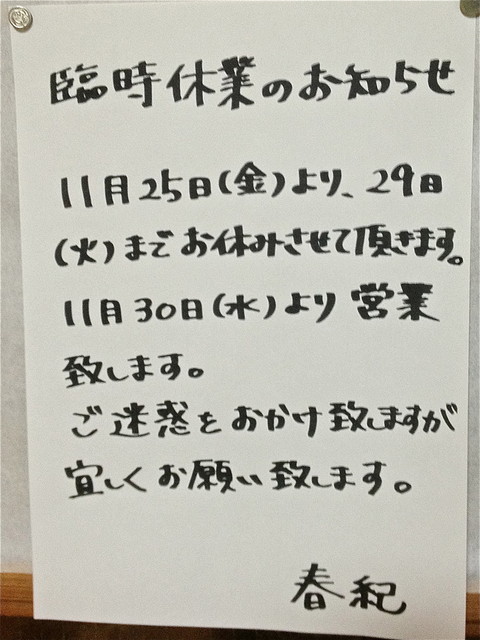 臨時休業のお知らせ
11月25日(金)より、29日
(火)までお休みさせて頂きます。
11月30日(水)より営業
致します。
ご迷惑をおかけ致しますが
宜しくお願い致します。
春紀